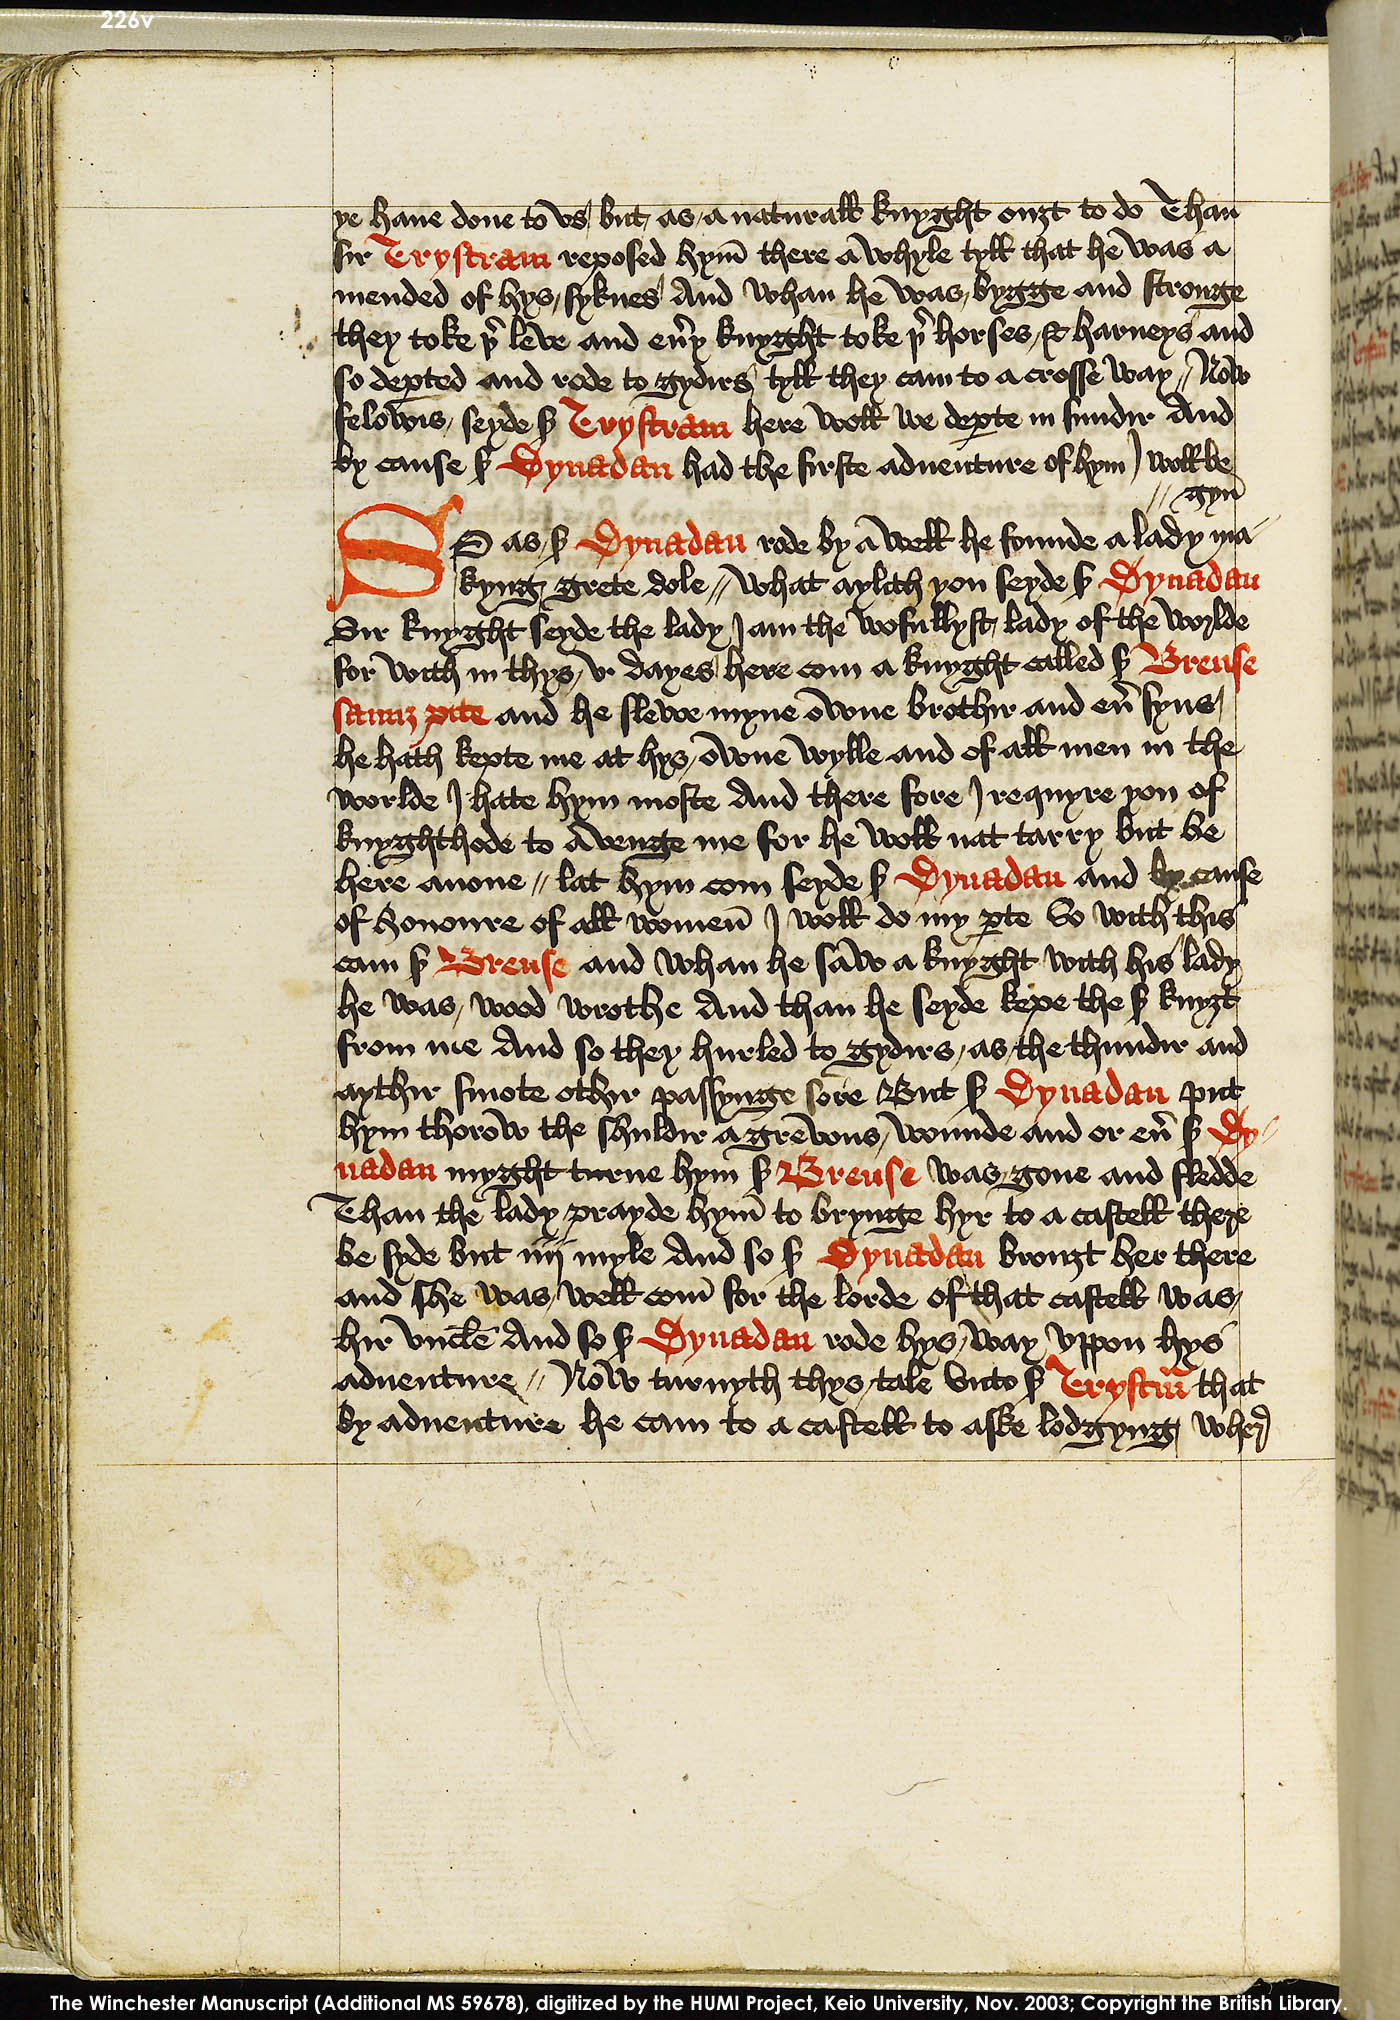 226v
ye haue done to vs but as a naturall knyght ouȝt to do Than
sir Trystram reposed hym̄ there a whyle tyll that he was a
mended of hys syknes And whan he was bygge and stronge
they toke þ̉ leve and eủy knyght toke þ̉ horses & harneys and
so dep̱ted and rode to gydirs tyll they cam to a crosse way // Now
felowis seyde sꝭ Trystram here woll we dep̱te in sundir And
by cause sꝭ Dynadan had the firste aduenture of hym I woll be
// gyn̄
SO as sꝭ Dynadan rode by a well he founde a lady ma
kyng grete dole // What aylith you seyde sꝭ Dynadan
Sir knyght seyde the lady I am the wofullyst lady of the worlde
for with in thys v dayes here com a knyght called sꝭ Breuse
saunz pite and he slewe myne owne brothir and eủ syns
he hath kepte me at hys owne wylle and of all men in the
worlde I hate hym moste And there fore I requyre you of
knyghthode to a venge me for he woll nat tarry but be
here anone // lat hym com seyde sꝭ Dynadan and by cause
of honoure of all women̄ I woll do my p̱te So with this
cam sꝭ Breuse and whan he saw a knyght with his lady
he was wood wrothe And than he seyde kepe the sꝭ knyȝt
from me And so they hurled to gydirs as the thundir and
aythir smote othir passynge sore But sꝭ Dynadan put
hym thorow the shuldir a grevous wounde and or eủ sꝭ Dy
nadan myght turne hym sꝭ Breuse was gone and fledde
Than the lady prayde hym̄ to brynge hyr to a castell there
be syde but iiij myle And so sꝭ Dynadan brouȝt her there
and she was well com̄ for the lorde of that castell was
hir vncle And so sꝭ Dynadan rode hys way vppon hys
aduenture // Now turnyth thys tale vnto sꝭ Trystrm̄ that
by aduenture he cam to a castell to aske lodgyng wher̉
The Winchester Manuscript (Additional MS 59678), digitized by the HUMI Project, Keio University, Nov. 2003; Copyright the British Library.